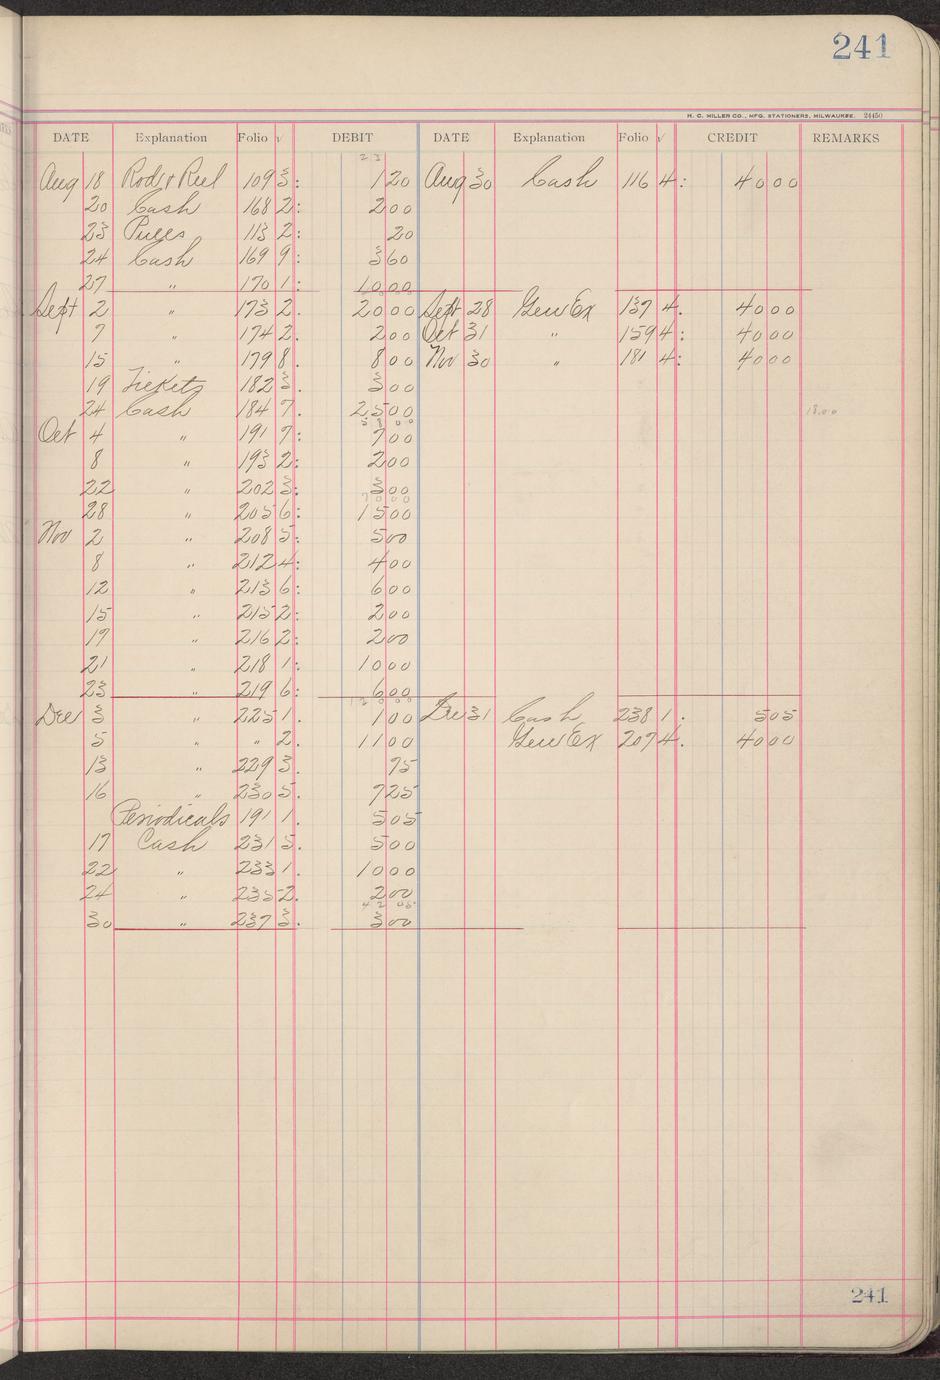 241
H. C. MILLER CO., MFG. STATIONERS, MILWAUKEE. 24450
DATE Explanation Folio √ DEBIT DATE Explanation Folio √ CREDIT REMARKS
23
Aug 18 Rod & Reel 109 3: 1 20 Aug 30 Cash 116 4: 40 00
20 Cash 168 2: 2 00
23 113 2: 20
24 Cash 169 9: 3 60
27 " 170 1: 10 00
Sept 2 " 173 2. 20 00 Sept 28 Gen Ex 137 4. 40 00
7 " 174 2. 2 00 Oct 31 " 159 4: 40 00
15 " 179 8. 8 00 Nov 30 " 181 4: 40 00
19 Tickets 182 3. 3 00
24 Cash 184 7. 25 00 18.00
Oct 4 " 191 7: 7 00
8 " 193 2: 2 00
22 " 202 3: 3 00
28 " 205 6: 15 00
Nov 2 " 208 5: 5 00
8 " 212 4: 4 00
12 " 213 6: 6 00
15 " 215 2: 2 00
19 " 216 2: 2 00
21 " 218 1: 10 00
23 " 219 6: 6 00
Dec 3 " 225 1. 1 00 Dec 31 Cash 238 1. 5 05
5 " " 2. 11 00 Gen Ex 207 4. 40 00
13 " 229 3. 75
16 " 230 5. 7 25
Periodicals 191 1. 5 05
17 Cash 231 5. 5 00
22 " 233 1. 10 00
24 " 235 2. 2 00
42 05
30 " 237 3. 3 00
241